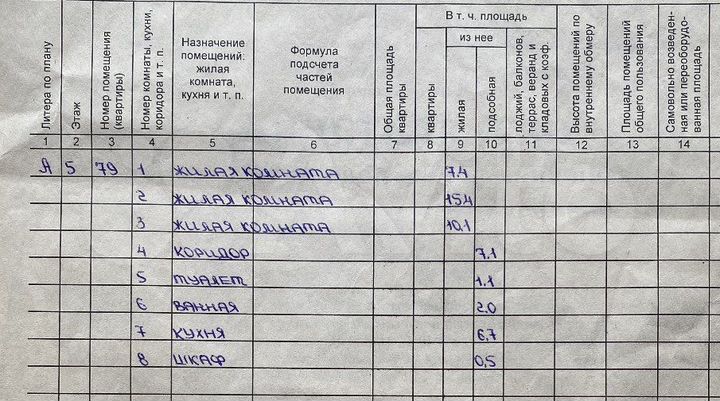 Литера по плану
Этаж
Номер помещения (квартиры)
Номер комнаты, кухни, коридора и т. п.
Назначение помещений: жилая комната, кухня и т. п.
Формула подсчета частей помещения
Общая площадь квартиры
В т. ч. площадь
квартиры
из нее
жилая
подсобная
лоджий, балконов, террас, веранд и кладовых с коэф.
Высота помещений по внутреннему обмеру
Площадь помещений общего пользования
Самовольно возведенная или переоборудованная площадь
1 2 3 4 5 6 7 8 9 10 11 12 13 14
А 5 79 1 жилая комната 7.4
2 жилая комната 15.4
3 жилая комната 10.1
4 коридор 7.1
5 туалет 1.1
6 ванная 2.0
7 кухня 6,7
8 шкаф 0,5